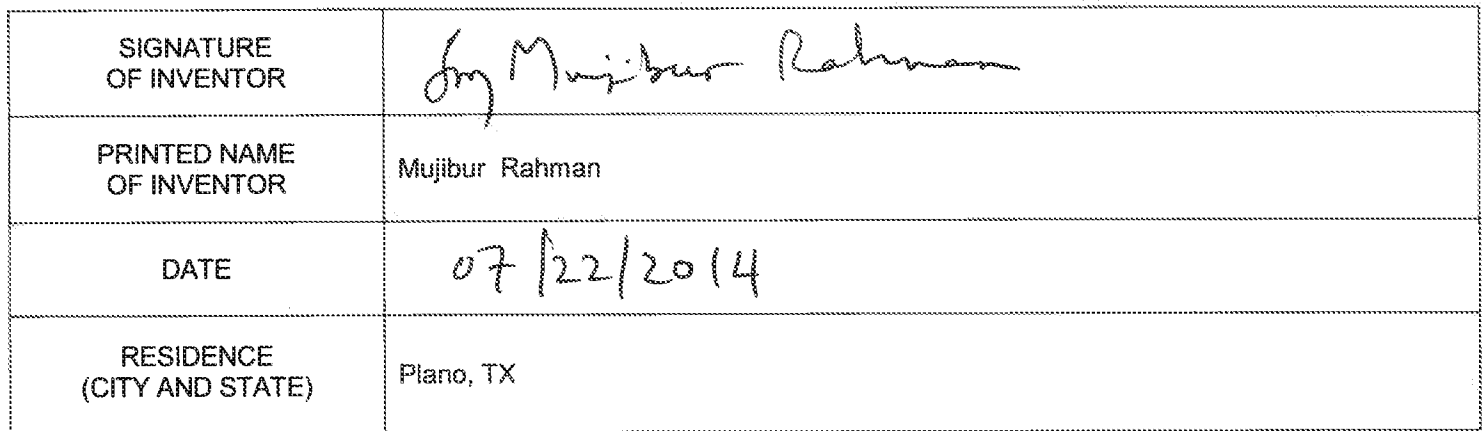 SIGNATURE
OF INVENTOR
Mujibur Rahman
PRINTED NAME
OF INVENTOR
Mujibur Rahman
DATE
07/22/2014
RESIDENCE
(CITY AND STATE)
Plano, TX